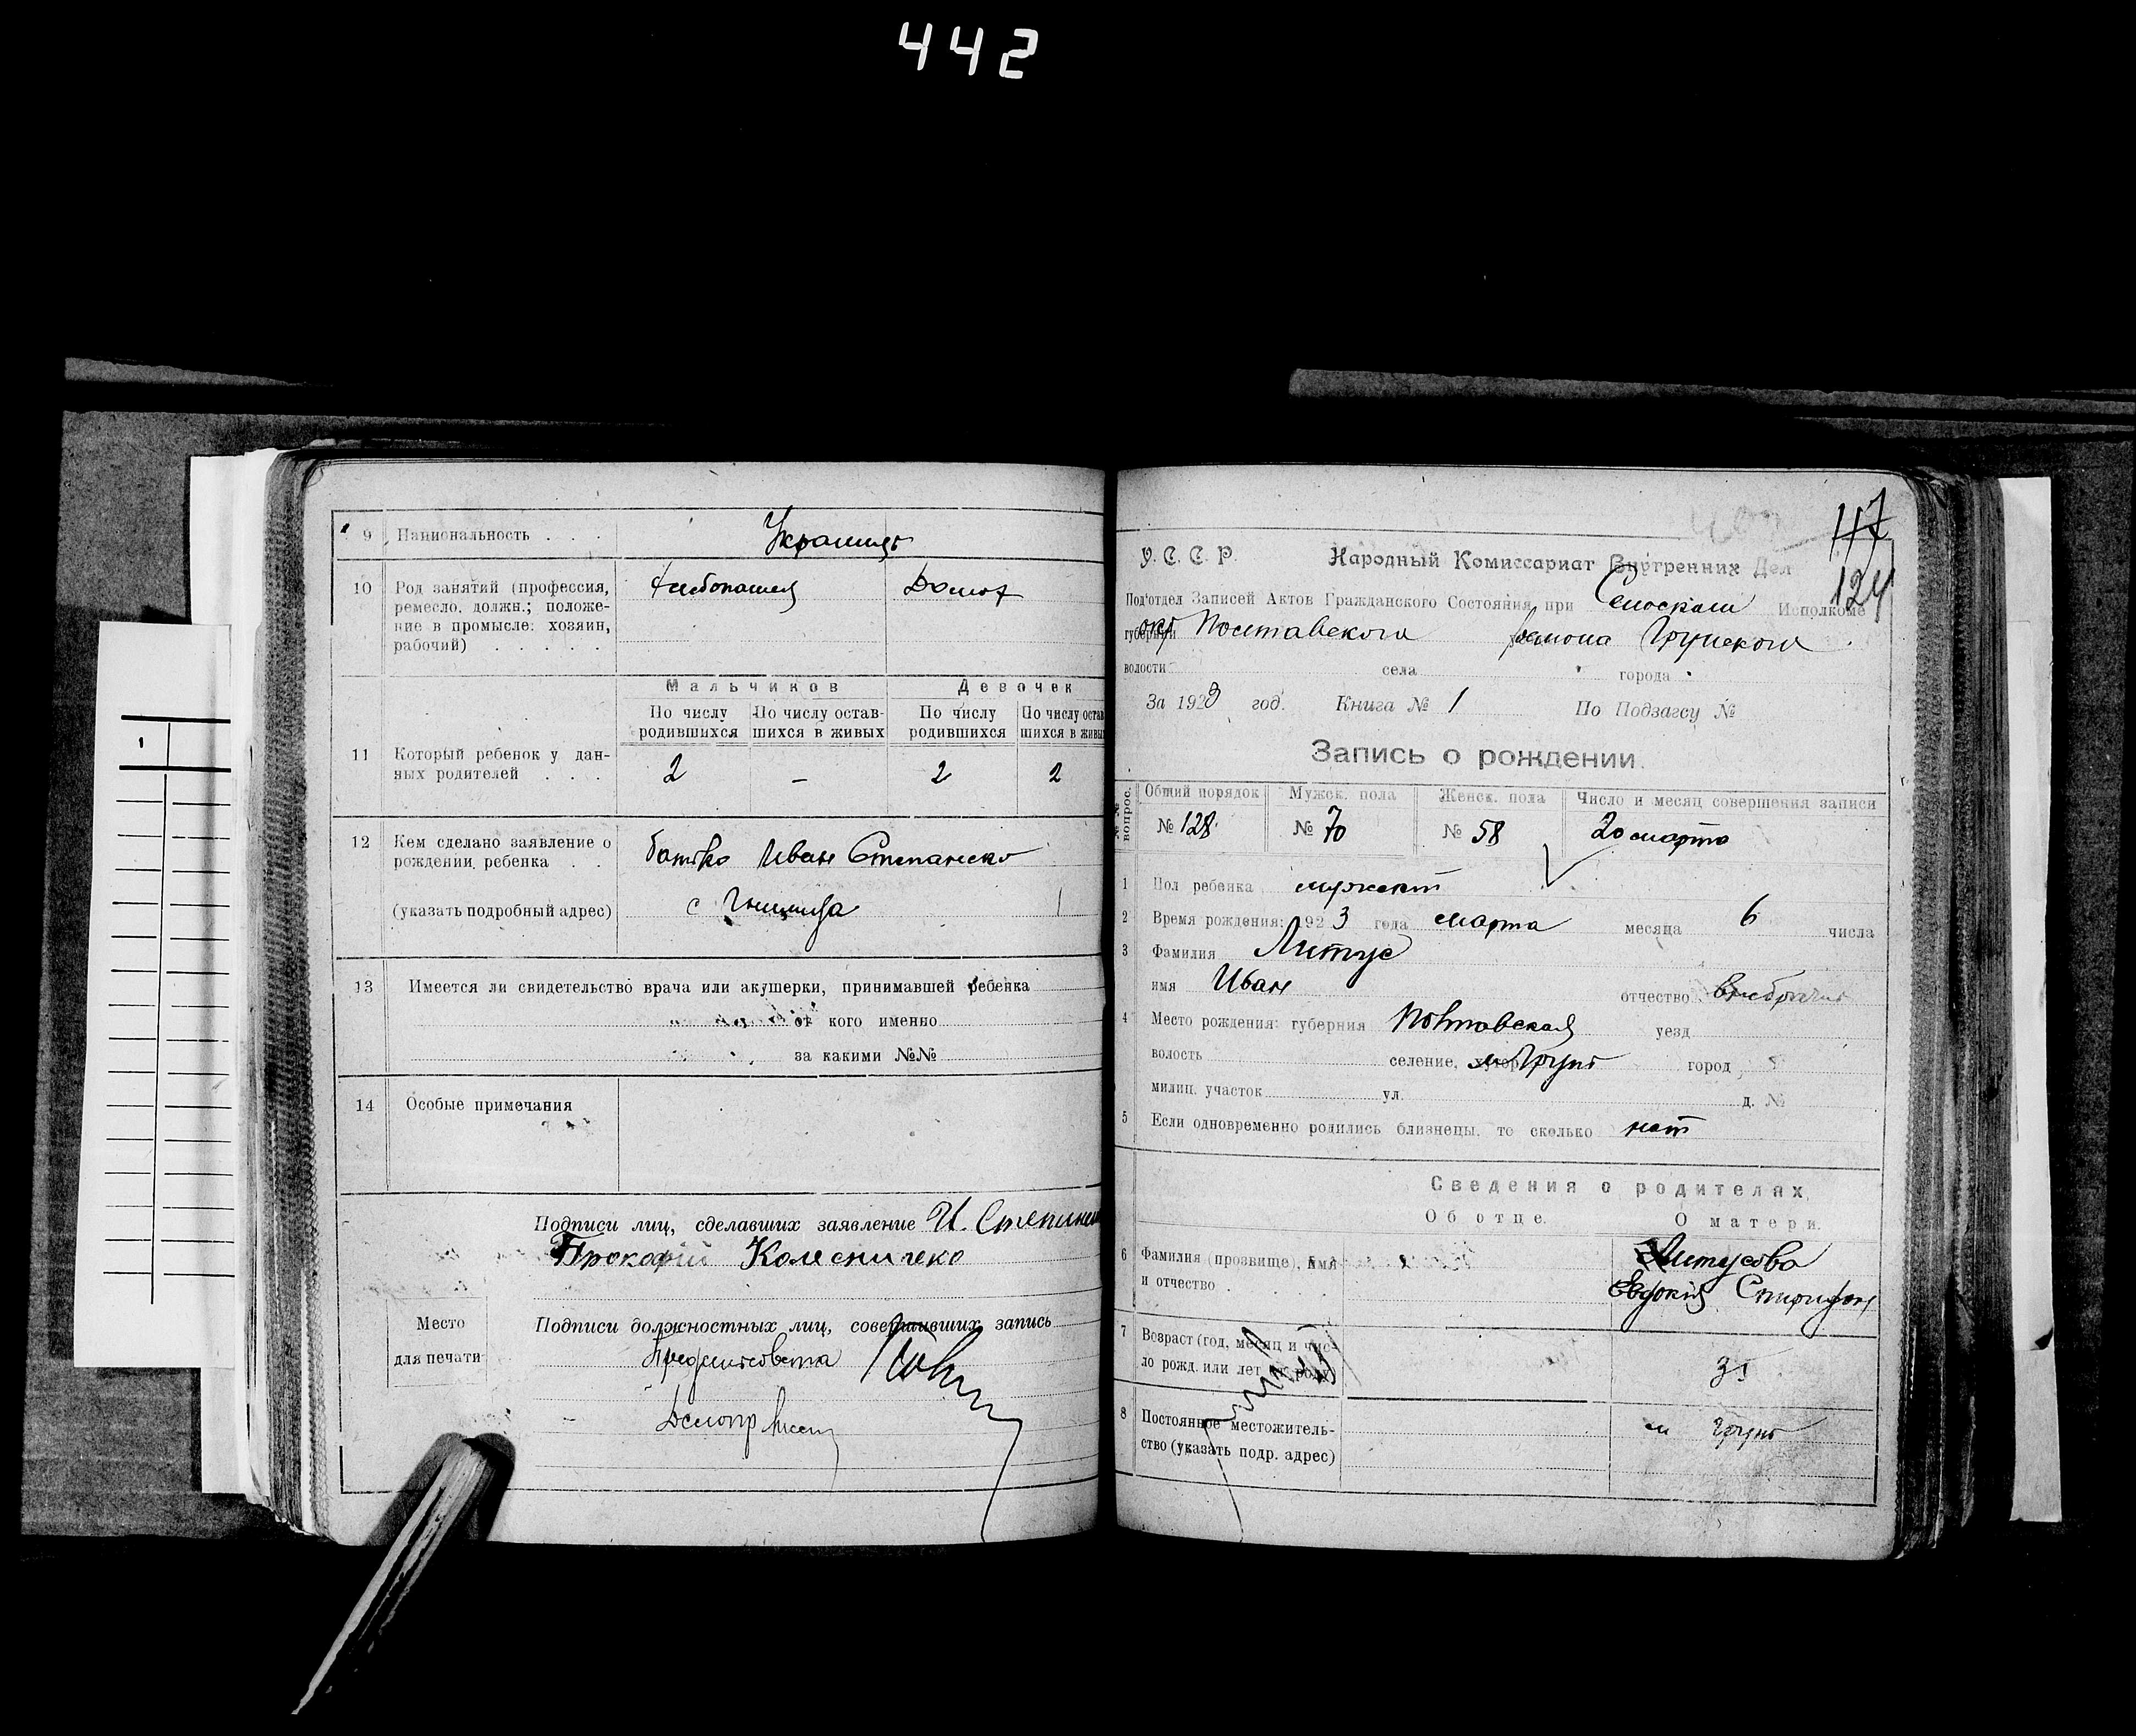 442
9 Национальность . . . Украинць
10 Род занятий (профессия,
ремесло, должн.; положе-
ние в промысле: хозяин,
рабочий) . . . . .
Хлебопашец Домох
Мальчиков Девочек
По числу родившихся По числу остав-шихся в живых По числу родившихся По числу остав-шихся в живых
11 Который ребенок у дан-
ных родителей . . . 2 – 2 2
12 Кем сделано заявление о
рождении ребенка . . батько Иван Степаненко
(указать подробный адрес) с
13 Имеется ли свидетельство врача или акушерки, принимавшей ребенка
от кого именно
за какими №№
14 Особые примечания
Подписи лиц, сделавших заявление И. Степанен
Прокофій Колесниченко
Место
для печати
Подписи должностных лиц, совершивших запись
Делопр
117
124
У. С. С. Р. Народный Комиссариат Внутренних Дел
Под'отдел Записей Актов Гражданского Состояния при Исполкоме
губернии окр Полтавского района Грунского
волости села города
За 1923 год. Книга № 1 По Подзагсу №
Запись о рождении.
№№ вопрос. Общий порядок Мужск. пола Женск. пола Число и месяц совершения записи
№ 128 № 70 № 58 20 марта
1 Пол ребенка мужской
2 Время рождения: 1923 года марта месяца 6 числа
3 Фамилия Литус
имя Иван отчество внебрачн
4 Место рождения: губерния Полтавская уезд
волость селение, хутор м Грунь город
милиц. участок ул. д. №
5 Если одновременно родились близнецы, то сколько нет
Сведения о родителях.
Об отце. О матери.
6 Фамилия (прозвище), имя
и отчество . . . .
Литусова
Евдокия Спиридон
7 Возраст (год, месяц и чис-
ло рожд. или лет от роду) 35
8 Постоянное местожитель-
ство (указать подр. адрес) м Грунь